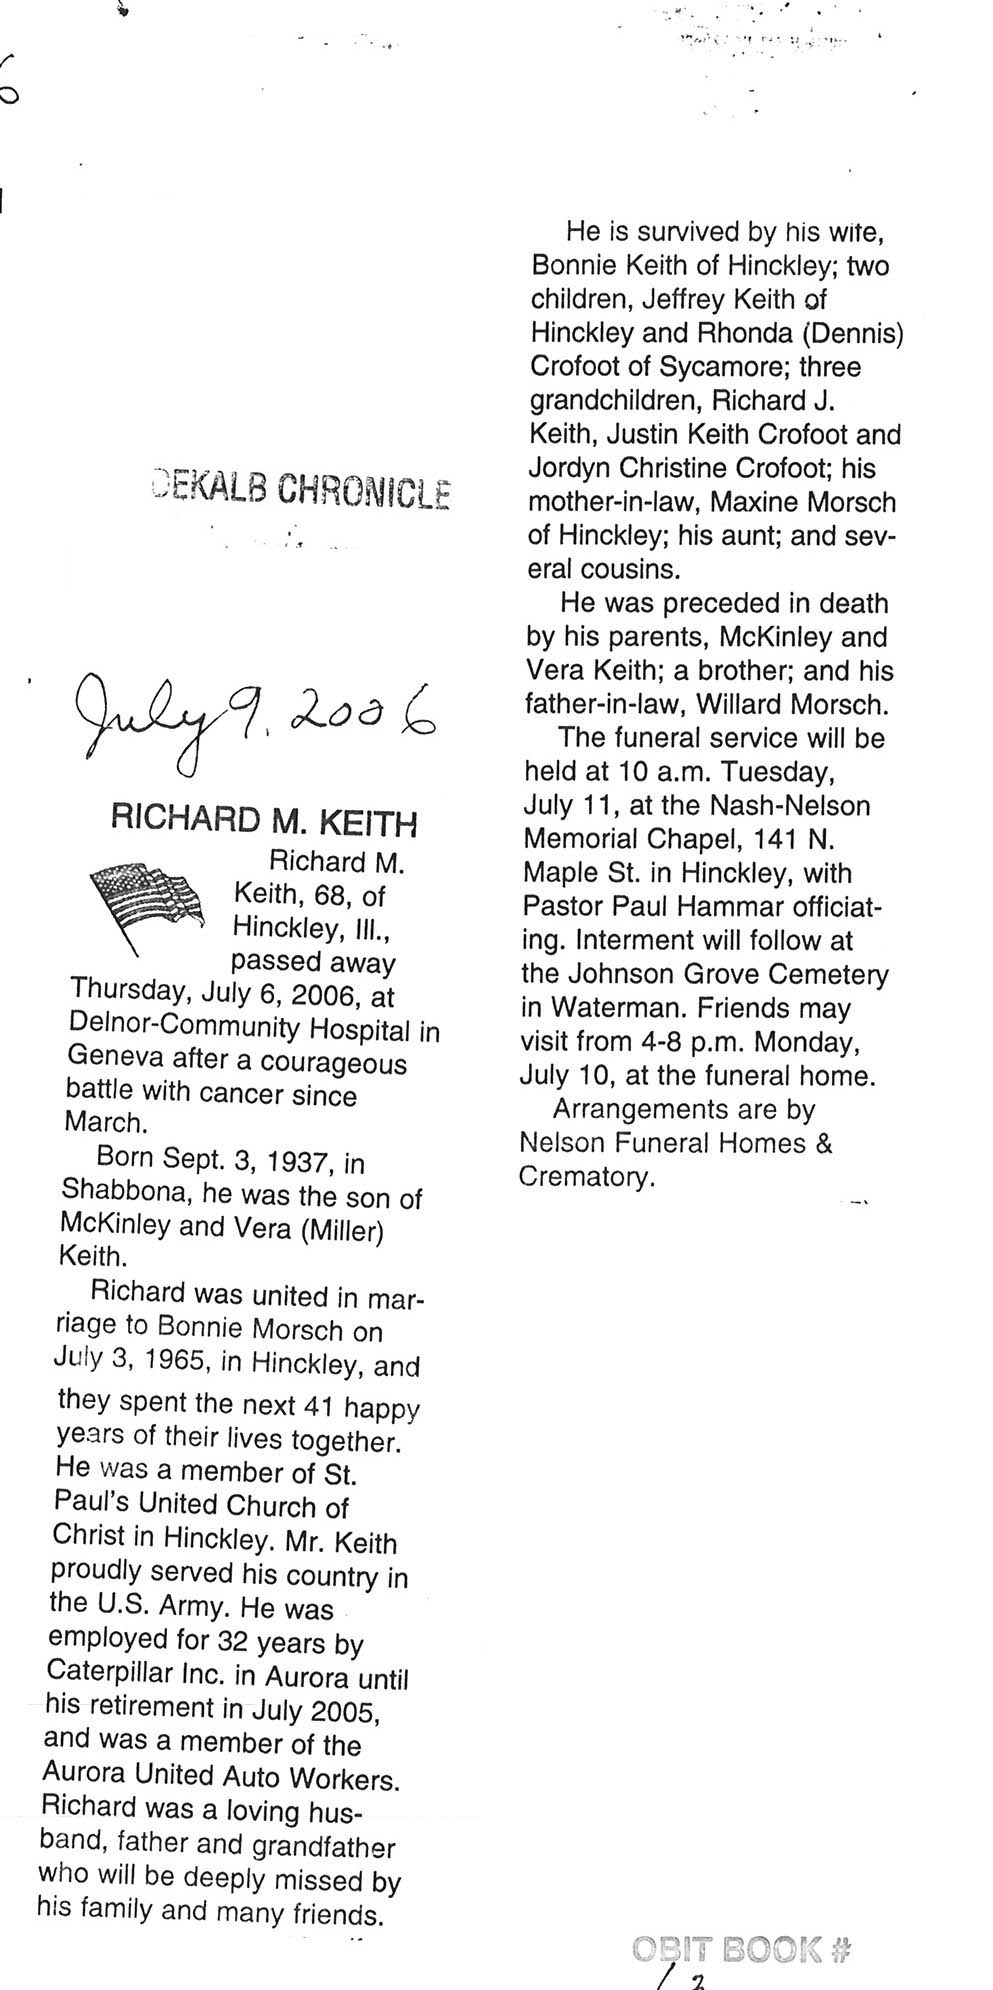 DEKALB CHRONICLE
July 9, 2006
RICHARD M. KEITH
Richard M.
Keith, 68, of
Hinckley, Ill.,
passed away
Thursday, July 6, 2006, at
Delnor-Community Hospital in
Geneva after a courageous
battle with cancer since
March.
Born Sept. 3, 1937, in
Shabbona, he was the son of
McKinley and Vera (Miller)
Keith.
Richard was united in mar-
riage to Bonnie Morsch on
July 3, 1965, in Hinckley, and
they spent the next 41 happy
years of their lives together.
He was a member of St.
Paul's United Church of
Christ in Hinckley. Mr. Keith
proudly served his country in
the U.S. Army. He was
employed for 32 years by
Caterpillar Inc. in Aurora until
his retirement in July 2005,
and was a member of the
Aurora United Auto Workers.
Richard was a loving hus-
band, father and grandfather
who will be deeply missed by
his family and many friends.
He is survived by his wife,
Bonnie Keith of Hinckley; two
children, Jeffrey Keith of
Hinckley and Rhonda (Dennis)
Crofoot of Sycamore; three
grandchildren, Richard J.
Keith, Justin Keith Crofoot and
Jordyn Christine Crofoot; his
mother-in-law, Maxine Morsch
of Hinckley; his aunt; and sev-
eral cousins.
He was preceded in death
by his parents, McKinley and
Vera Keith; a brother; and his
father-in-law, Willard Morsch.
The funeral service will be
held at 10 a.m. Tuesday,
July 11, at the Nash-Nelson
Memorial Chapel, 141 N.
Maple St. in Hinckley, with
Pastor Paul Hammar officiat-
ing. Interment will follow at
the Johnson Grove Cemetery
in Waterman. Friends may
visit from 4-8 p.m. Monday,
July 10, at the funeral home.
Arrangements are by
Nelson Funeral Homes &
Crematory.
OBIT BOOK #